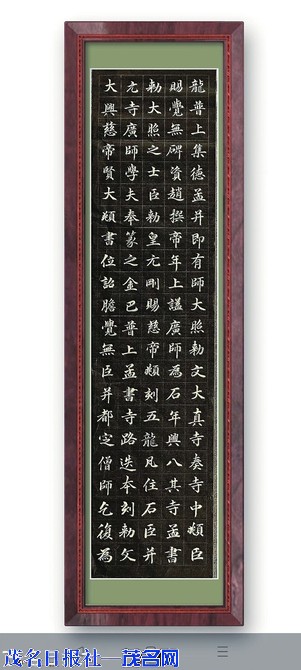 龍普上集德孟并即有師大照勅文大真寺奏寺中頰臣
賜覺無碑資趙撰帝年上謚廣師為石年興八其寺孟書
勅大照之士臣勅皇元剛賜慈帝頰刻五龍凡住石臣并
元寺廣師學夫奉篆之金巴普上孟書寺路迭本刻勅文
大興慈帝賢大頰書位詔膽覺無臣并都定僧師乞復為
茂名日报社—茂名网